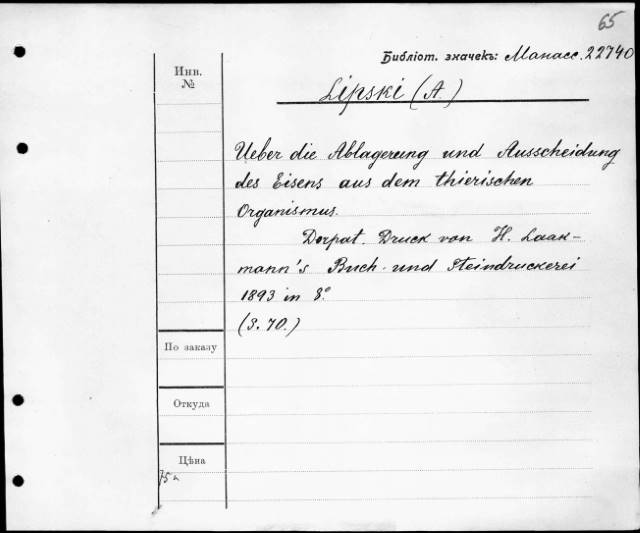 65
Библіот. значекъ: Манасс. 22740
Инв.
№
Lipski (A.)
Ueber die Ablagerung und Ausscheidung
des Eisens aus dem thierischen
Organismus.
Dorpat. Druck von H. Laak-
mann's Buch- und Steindruckerei
1893 in 8°.
(S. 70.)
По заказу
Откуда
Цѣна